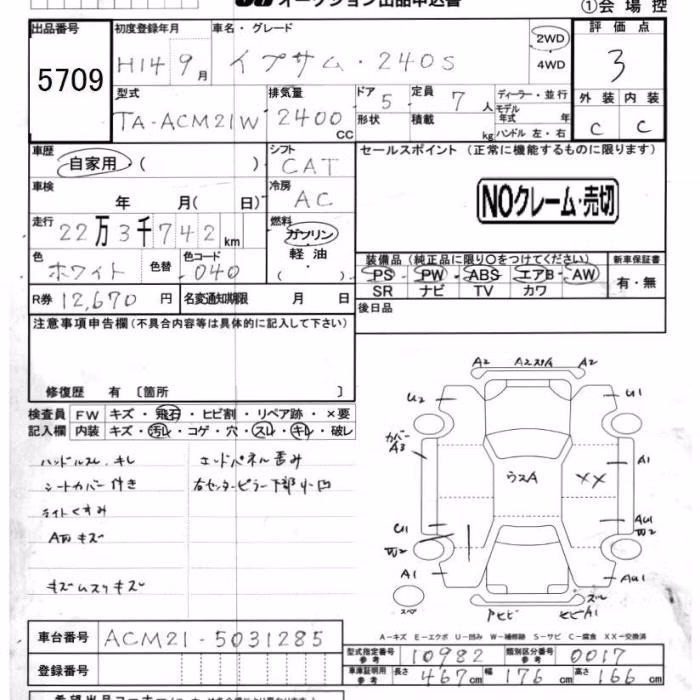 オークション出品申込書
①会場控
出品番号 初度登録年月 車名・グレード 評価点
5709 H14 9月 イプサム・240S 2WD 4WD 3
型式 排気量 ドア 定員 ディーラー・並行 外装 内装
TA-ACM21W 2400 CC 5 7人 モデル年式 年 C C
形状 積載 kg ハンドル 左・右
車歴 シフト セールスポイント (正常に機能するものに限ります)
自家用 ( ) CAT
車検 冷房 NOクレーム・売切
年 月( 日) AC
走行 燃料
22万3千742km ガソリン
軽油
( )
装備品 (純正品に限り○をつけてください) 新車保証書
色 色替 色コード PS PW ABS エアB AW 有・無
ホワイト 040 SR ナビ TV カワ
R券 12,670円 名変通知期限 月 日 後日品
注意事項申告欄 (不具合内容等は具体的に記入して下さい)
修復歴 有 〔箇所 〕
検査員 FW キズ・飛石・ヒビ割・リペア跡・×要
記入欄 内装 キズ・汚レ・コゲ・穴・スレ・キレ・破レ
ハンドルスレ、キレ エンドパネル歪み
シートカバー付き 右センターピラー下部小凹
ライトくすみ
AWキズ
キズムスリキズ
A2 A2スリA A2
U2 U1
カバー
A3 A1
ウスA XX
U1 AU1
W2 W2
A1 AU1
スペア
アヒビ ヒビA1 ズレ
A－キズ E－エクボ U－凹み W－補修跡 S－サビ C－腐食 XX－交換済
車台番号 ACM21-5031285
型式指定番号 参考 10982 類別区分番号 参考 0017
登録番号
車庫証明用 参考 長さ 467cm 幅 176cm 高さ 166cm